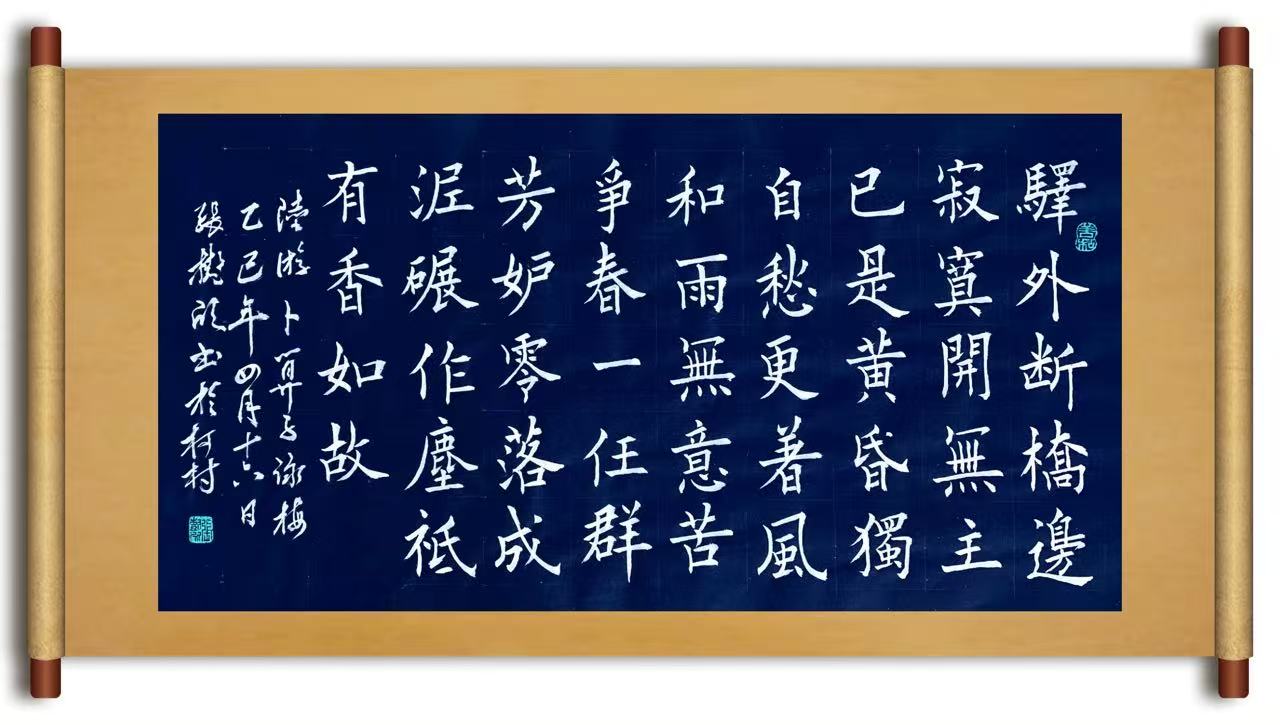 驛外断橋邊
寂寞開無主
已是黄昏獨
自愁更着風
和雨無意苦
爭春一任群
芳妒零落成
泥碾作塵祇
有香如故
陸游卜算子詠梅
乙巳年四月十六日
書於柯村